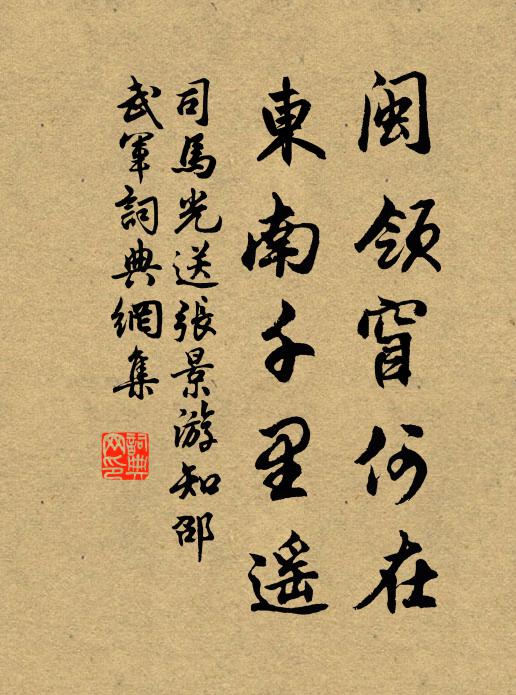 閩領窅何在
東南千里遥
司馬光送張景游知邵
武軍詞典網集
詞典網印